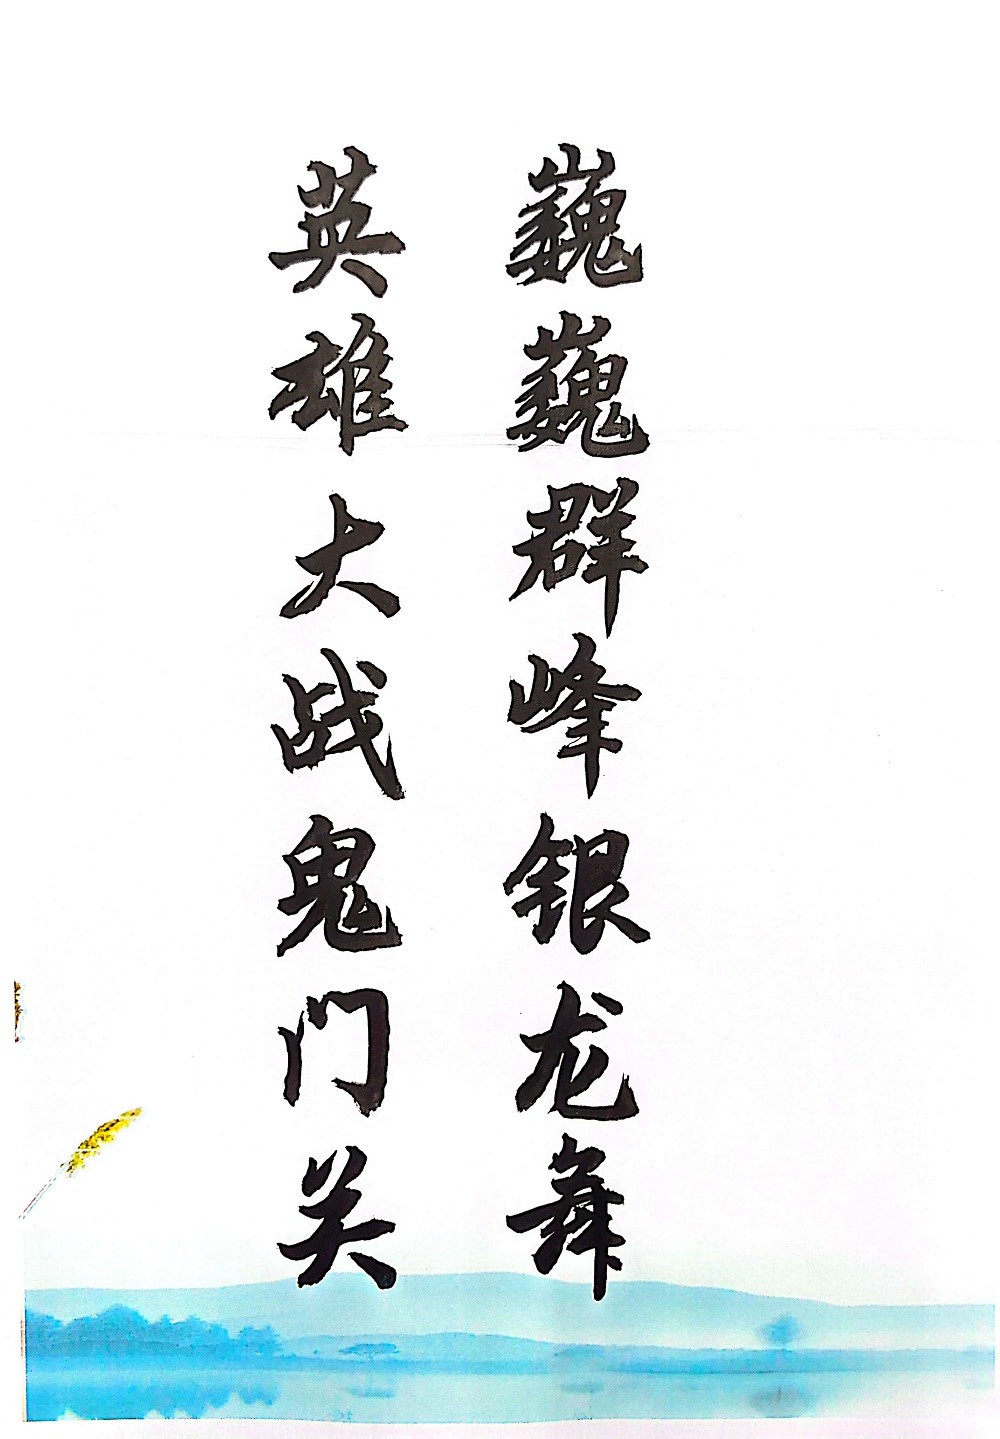 巍巍群峰银龙舞
英雄大战鬼门关